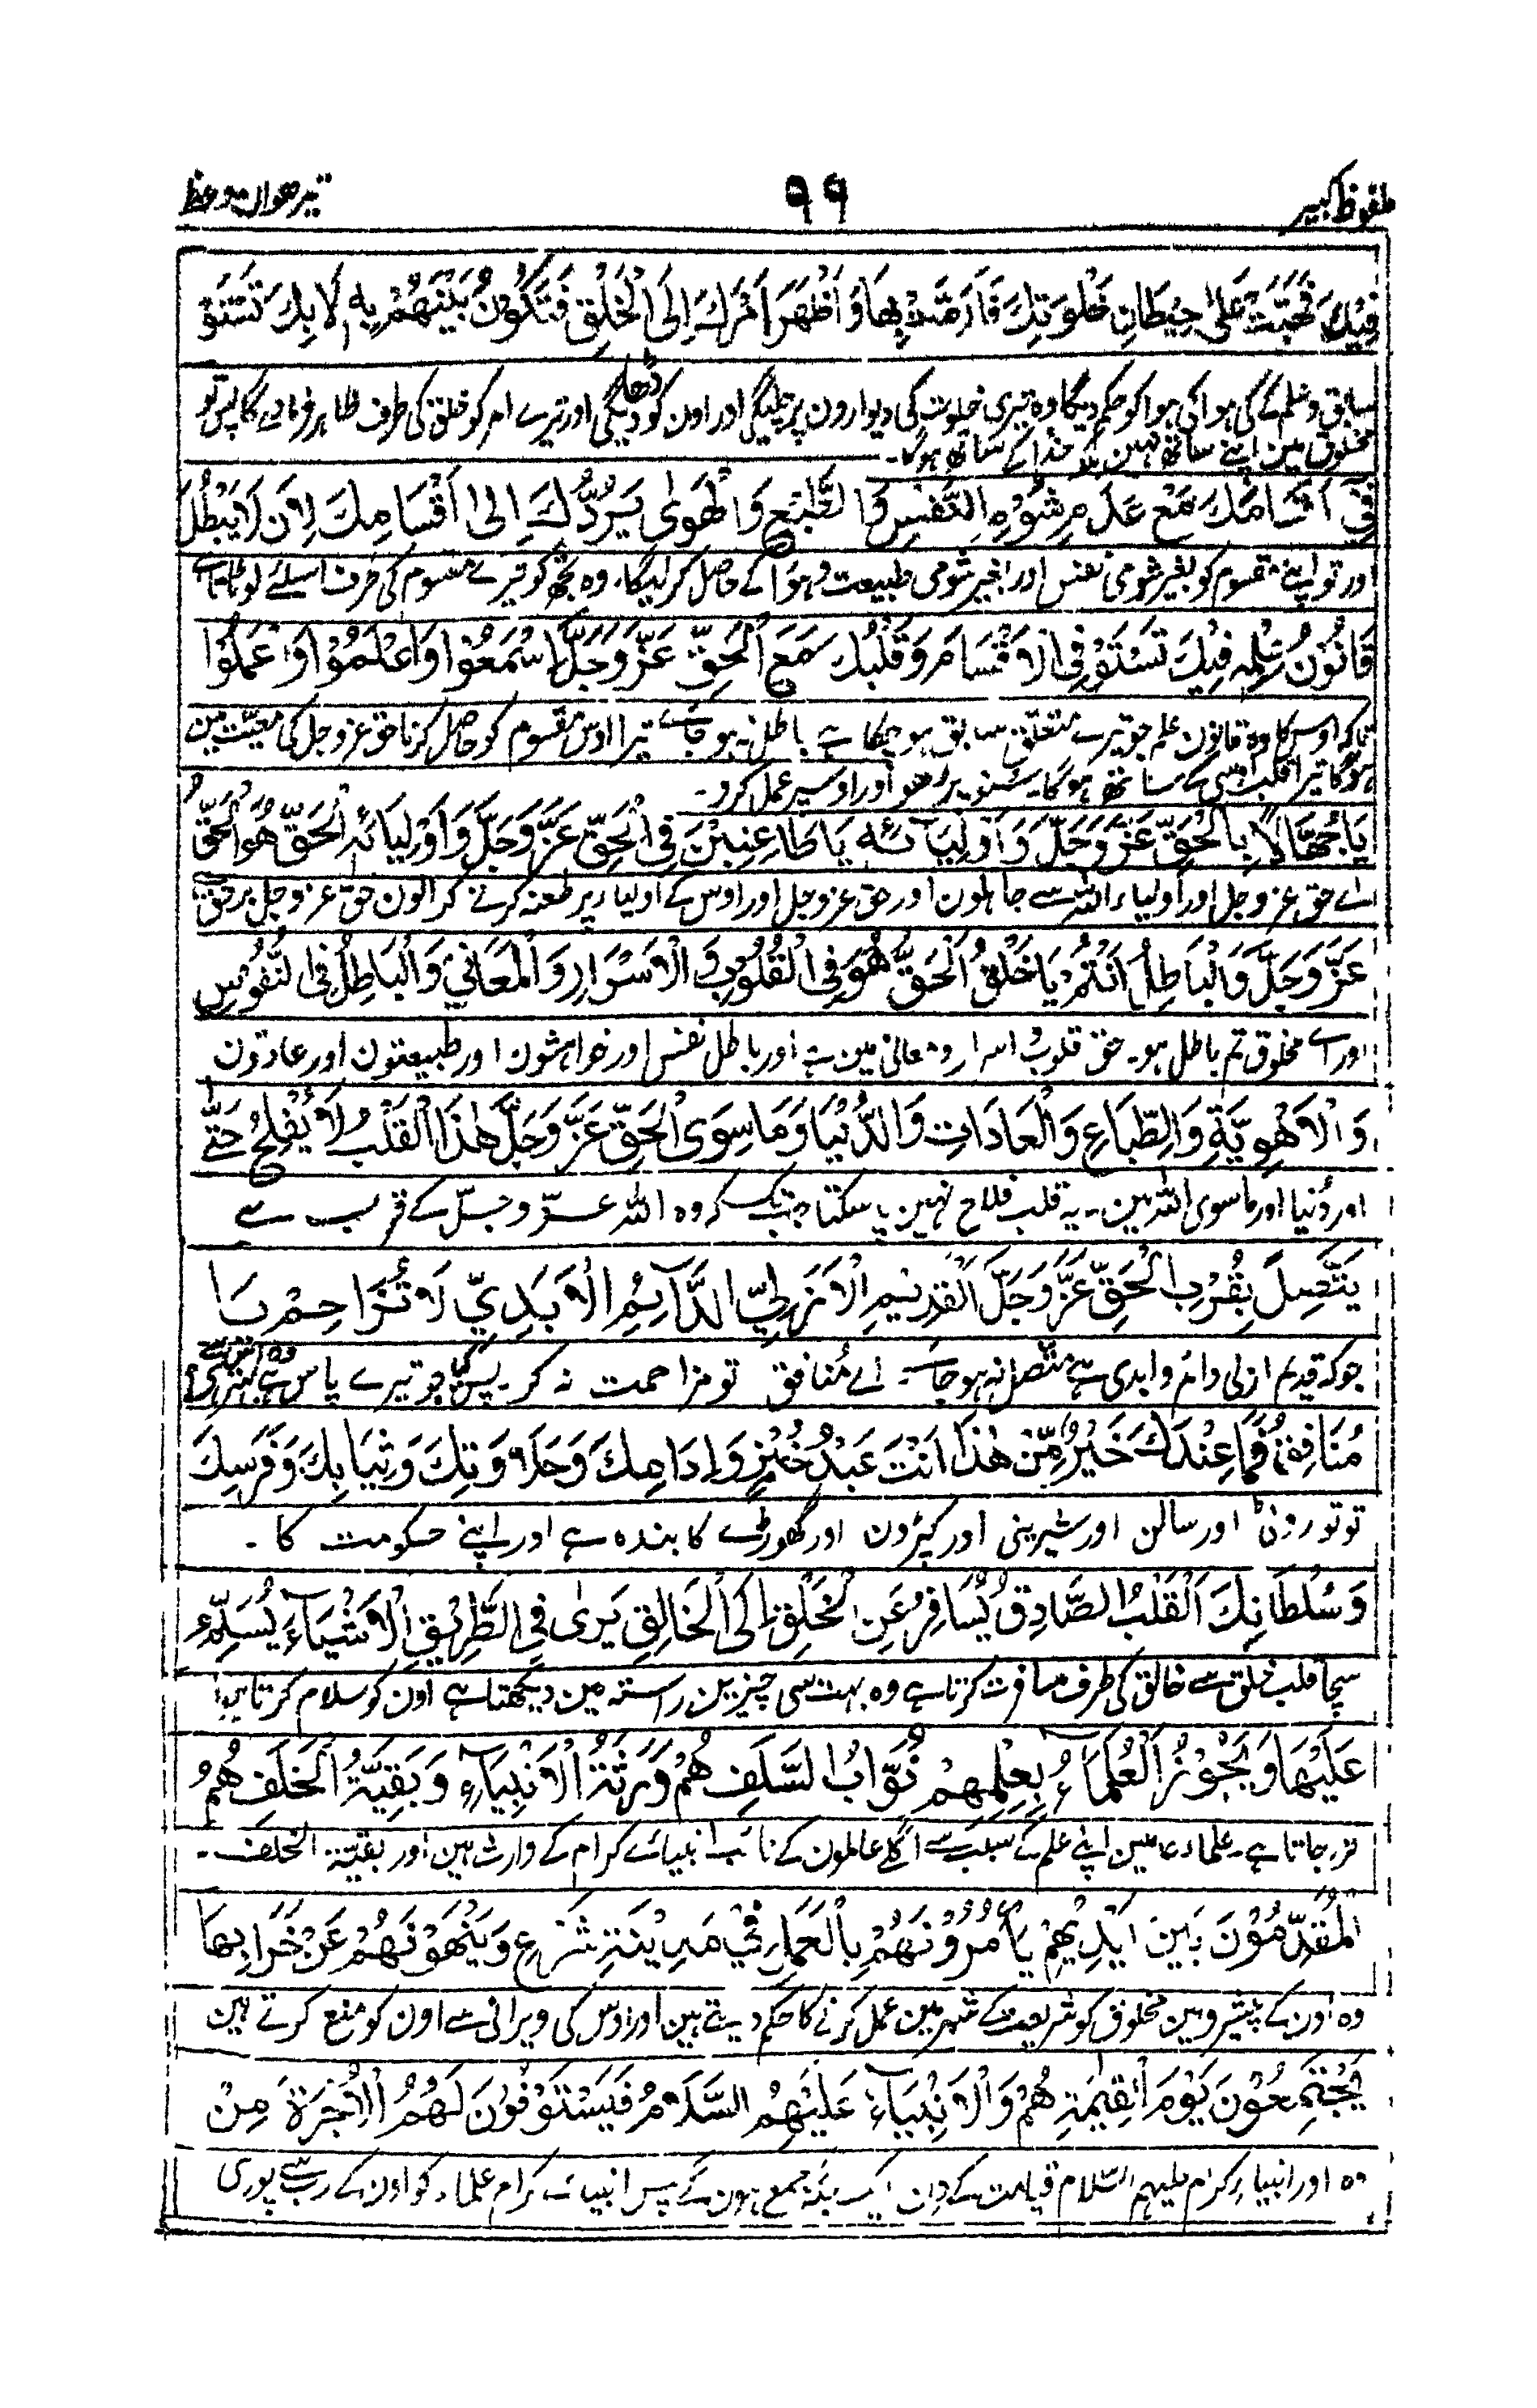 ملفوظ کبیر ۹۹ تیرھوان وعظ
فِيْكَ فَهَبَّتْ عَلٰى حِيْطَانِ خَلْوَتِكَ فَاَرَمَّتْ بِهَا وَاَظْهَرَ اَمْرَكَ اِلَى الْخَلْقِ فَتَكُوْنُ بَيْنَهُمْ بِهٖ لَا بِكَ تَسْتَوْ
سابق وعلم کے گی ہوا کی ہوا کو حکم دیگا وہ تیری خلوت کی دیوارون پر چلیگی اور اون کو ڈھا دیگی اور تیرے امر کو خلق کی طرف ظاہر فرمائے گا پس تو
مخلوق مین اپنے ساتھ نہین بلکہ خدا کے ساتھ ہوگا۔
فِيْ اَقْسَامَكَ مَعْ عَدَمِ شَوْمِ النَّفْسِ وَالطَّبْعِ وَالْهَوٰى يَرُدُّكَ اِلٰى اَقْسَامِكَ لِاَنْ لَا يَبْطُلَ
اور تو اپنے مقسوم کو بغیر شومی نفس اور بغیر شومی طبیعت و ہوا کے حاصل کر لیگا۔ وہ تجھ کو تیرے مقسوم کی طرف اسلئے لوٹاتا ہے
قَانُوْنُ عِلْمِهٖ فِيْكَ تَسْتَوْفِى الْاَقْسَامَ وَقَلْبُكَ مَعَ الْحَقِّ عَزَّوَجَلَّ اِسْمَعُوْا وَاعْلَمُوْا وَاعْمَلُوْا
تاکہ اوس کا وہ قانون علم جو تیرے متعلق سابق ہو چکا ہے باطل نہ ہو جائے تیرا اوس مقسوم کو حاصل کرنا حق عزوجل کی معیت مین
ہوگا تیرا قلب اوسی کے ساتھ ہوگا۔ سنو پڑھو اور اوسپر عمل کرو۔
يَا جُهَّالًا بِالْحَقِّ عَزَّوَجَلَّ وَاَوْلِيَآئِهٖ يَا طَاعِنِيْنَ فِى الْحَقِّ عَزَّوَجَلَّ وَاَوْلِيَائِهِ الْحَقُّ هُوَ الْحَقُّ
اے حق عزوجل اور اولیاء اللہ سے جاہلون اور حق عزوجل اور اوس کے اولیاء پر طعنہ کرنے والون حق عزوجل برحق ہے
عَزَّوَجَلَّ وَالْبَاطِلُ اَنْتُمْ يَا خَلْقُ الْحَقُّ هُوَ فِى الْقُلُوْبِ وَالْاَسْرَارِ وَالْمَعَانِيْ وَالْبَاطِلُ فِى النُّفُوْسِ
اور اے مخلوق تم باطل ہو۔ حق قلوب اسرار و معانی مین ہے اور باطل نفس اور خواہشون اور طبیعتون اور عادتون
وَالْاَهْوِيَةِ وَالطِّبَاعِ وَالْعَادَاتِ وَالدُّنْيَا وَمَا سِوَى الْحَقِّ عَزَّوَجَلَّ هٰذَا الْقَلْبُ لَا يُفْلِحُ حَتّٰى
اور دُنیا اور ماسوی اللہ مین۔ یہ قلب فلاح نہین پا سکتا جب تک کہ وہ اللہ عزّوجلّ کے قرب سے
يَتَّصِلَ بِقُرْبِ الْحَقِّ عَزَّوَجَلَّ الْقَدِيْمِ الْاَزَلِيِّ الدَّآئِمِ الْاَبَدِيِّ لَا تُزَاحِمْ يَا
جو کہ قدیم ازلی دائم و ابدی ہے متصل نہ ہو جائے۔ اے مُنافق تو مزاحمت نہ کر۔ پس جو تیرے پاس ہے بہتر ہی
مُنَافِقُ فَمَا عِنْدَكَ خَيْرٌ مِّنْ هٰذَا اَنْتَ عَبْدُ خُبْزٍ وَاِدَامِكَ وَحَلَاوَتِكَ وَثِيَابِكَ وَفَرَسِكَ
تو تو روٹی اور سالن اور شیرینی اور کپڑون اور گھوڑے کا بندہ ہے اور اپنے حکومت کا۔
وَسُلْطَانِكَ اَلْقَلْبُ الصَّادِقُ يُسَافِرُ عَنِ الْخَلْقِ اِلَى الْخَالِقِ يَرٰى فِى الطَّرِيْقِ الْاَشْيَآءَ يُسَلِّمُ
سچا قلب خلق سے خالق کی طرف مسافرت کرتا ہے وہ بہت سی چیزین راستہ مین دیکھتا ہے اون کو سلام کرتا ہوا
عَلَيْهَا وَيَجُوْزُ اَلْعُلَمَآءُ بِعِلْمِهِمْ نُوَّابُ السَّلَفِ هُمْ وَرَثَةُ الْاَنْبِيَآءِ وَبَقِيَّةُ الْخَلَفِ هُمُ
گزر جاتا ہے۔ علماء عاملین اپنے علم کے سبب سے اگلے عالمون کے نائب انبیائے کرام کے وارث ہین اور بقیۃ الخلف۔
الْمُقَدَّمُوْنَ بَيْنَ اَيْدِيْهِمْ يَأْمُرُوْنَهُمْ بِالْعَمَلِ فِيْ مَدِيْنَةِ شَرْعٍ وَيَنْهَوْنَهُمْ عَنْ خَرَابِهَا
وہ اون کے پیشرو ہین مخلوق کو شریعت کے شہر مین عمل کرنے کا حکم دیتے ہین اور اوس کی ویرانی سے اون کو منع کرتے ہین
يَجْتَمِعُوْنَ يَوْمَ الْقِيٰمَةِ هُمْ وَالْاَنْبِيَآءُ عَلَيْهِمُ السَّلَامُ فَيَسْتَوْفُوْنَ لَهُمُ الْاُجْرَةَ مِنْ
وہ اور انبیاء کرام علیہم السّلام قیامت کے دن ایک جگہ جمع ہون گے پس انبیائے کرام علماء کو اون کے رب سے پوری